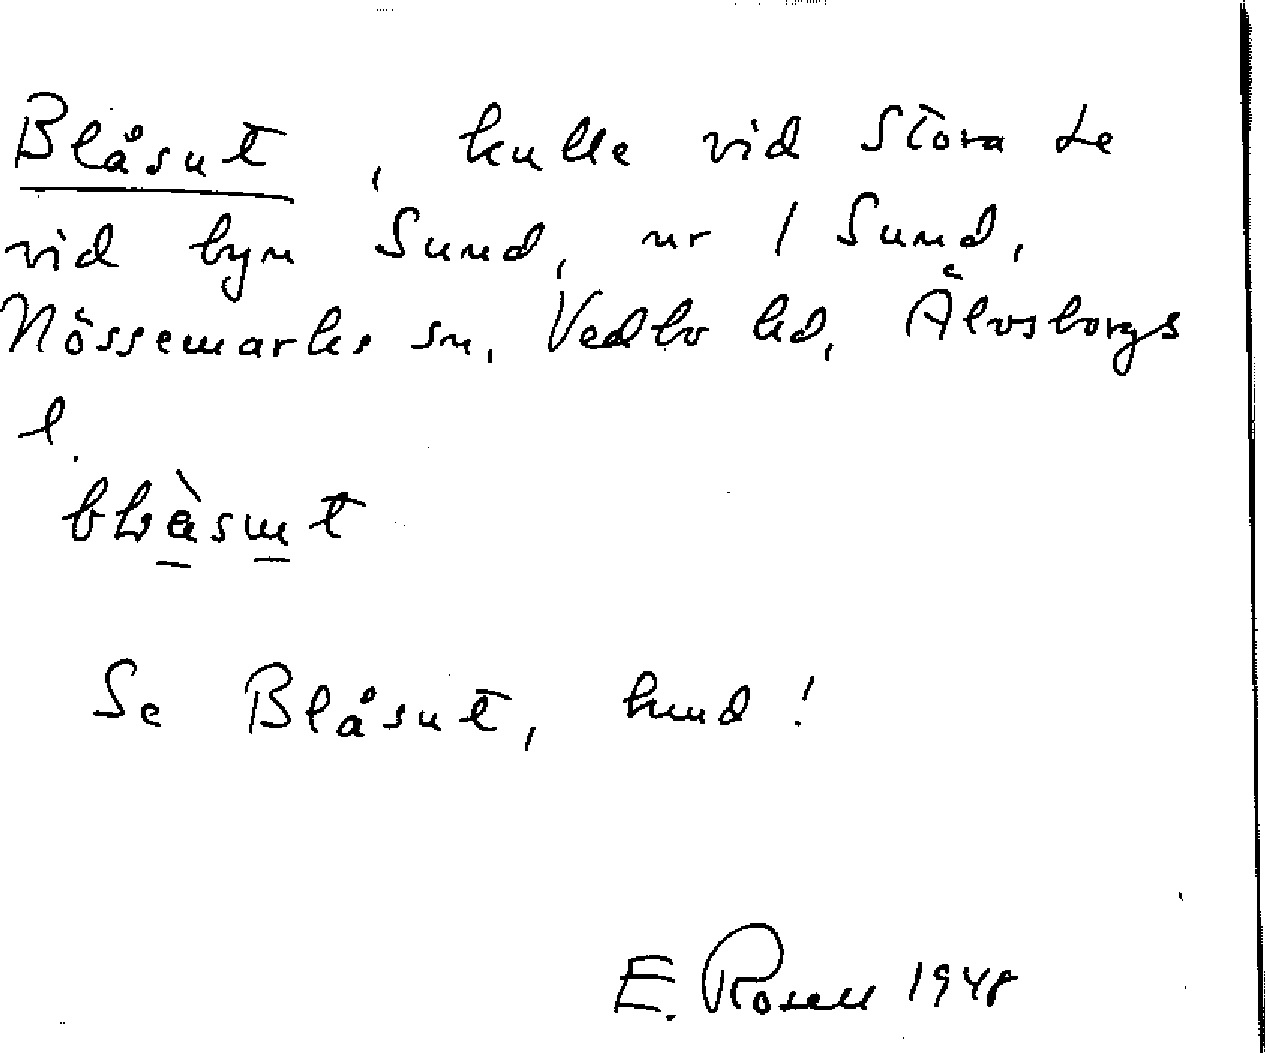 Blåsut, kulle vid Stora Le
vid byn Sund, nr 1 Sund,
Nössemarks sn, Vedbo hd, Älvsborgs
l.
Se Blåsut, hund!
E. Rosell 1948